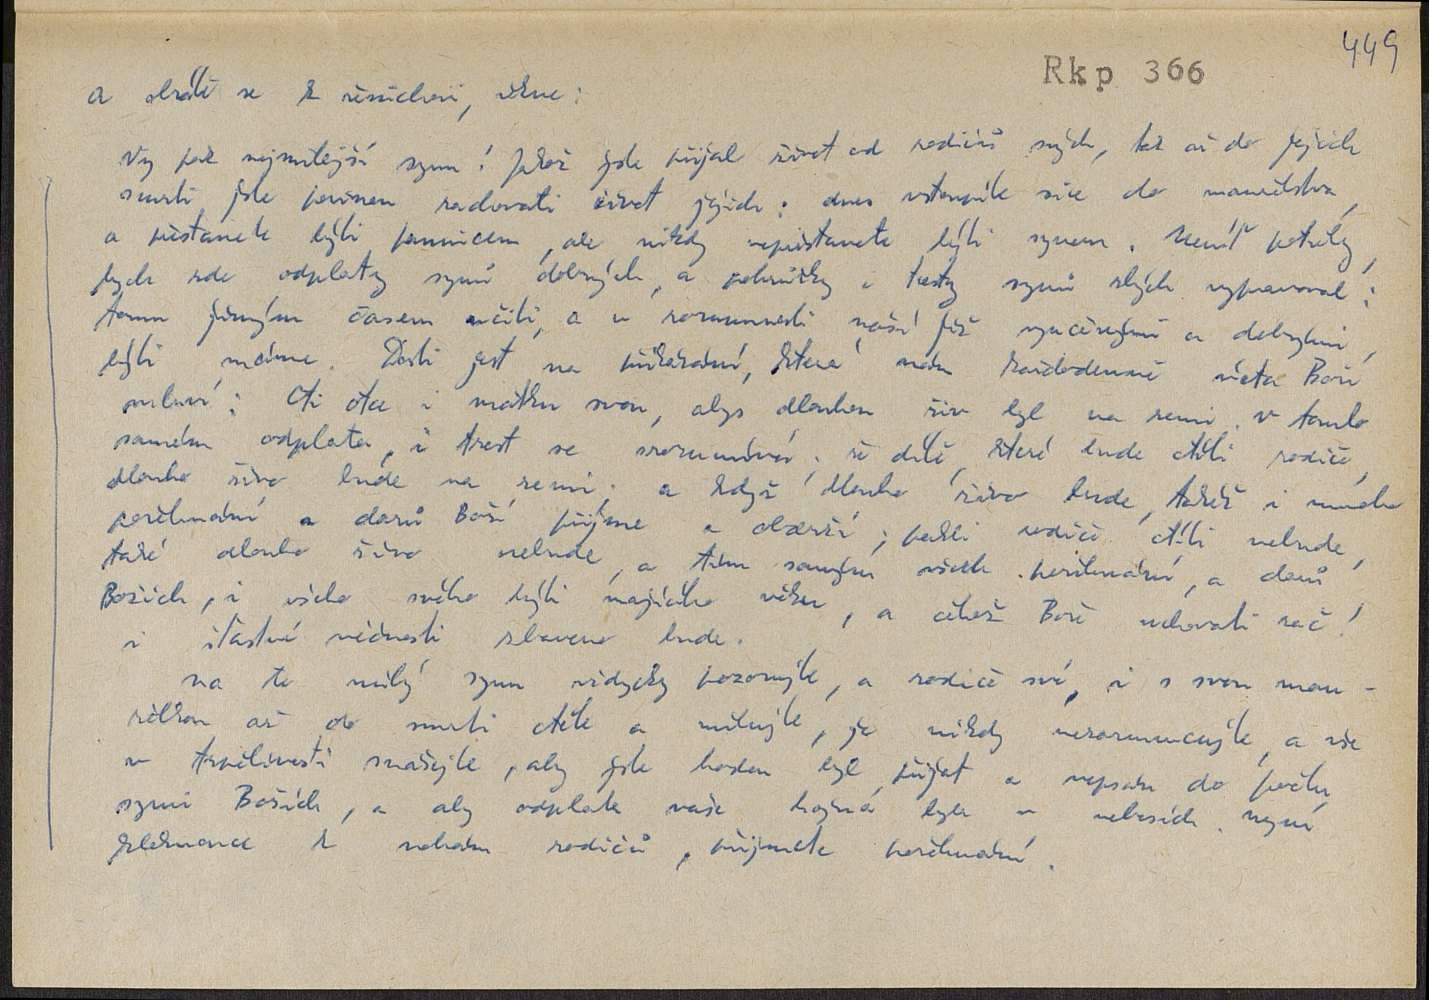 449
Rkp 366
a obrátě se k ženichovi, řekne:
Vy pak nejmilejší synu! jakož jste přijal život od rodičů svých, tak až do jejich
smrti jste povinen radovati život jejich: dnes vstoupíte sice do manželstva,
a přestanete býti pannicem, ale nikdy nepřestanete býti synem. Neníť potřeby,
bych zde odplaty synů dobrých, a pohrůžky i tresty synů zlých vypravoval;
tomu jiným časem učiti, a v rozumnosti naší již vycvičenými a dobrými,
býti máme. Dosti jest na přikázání, které nám každodenně ústa Boží
mluví: Cti otce i matku svou, abys dlouho živ byl na zemi. v tomto
samém odplata, i trest se srozumívá; že dítě, které bude ctíti rodiče,
dlouho živo bude na zemi; a když dlouho živo bude, takéž i mnoho
požehnání a darů Boží přijme a obdrží; pakli rodiče ctíti nebude,
také dlouho živo nebude, a tím samým všech požehnání, a darů
Božích, i všeho svého býti majícího věku, a čehož Bože uchovati rač!
i šťastné věčnosti zbaveno bude.
na to milý synu vždycky pozorujte, a rodiče své, i s svou man-
želkou až do smrti ctěte a milujte, je nikdy nezarmucujte, a vše
v trpělivosti snášejte, aby jste hoden byl přijat a vepsán do počtu
synů Božích, a aby odplata vaše hojná byla v nebesích. Nyní
kleknouce k nohám rodičů, přijmete požehnání.